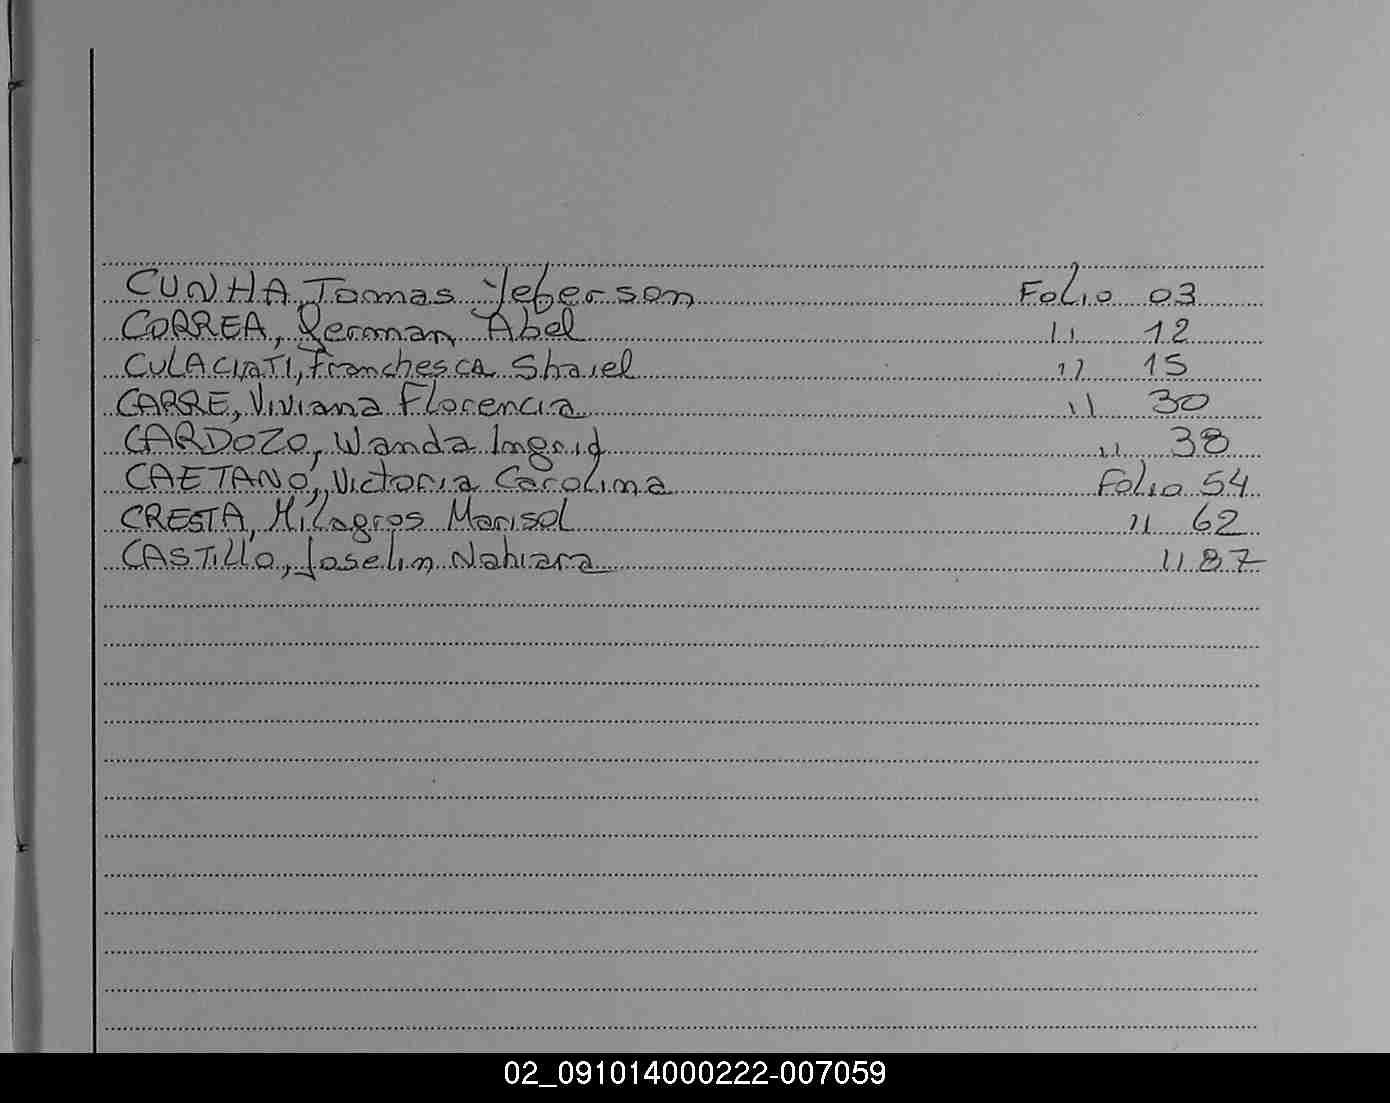 CUNHA, Tomas Yeferson Folio 03
CORREA, German Abel 11 12
CULACIATI, FranchesCA Shaiel 11 15
CARRE, Viviana Florencia 11 30
CARDOZO, Wanda Ingrid 11 38
CAETANO, Victoria Carolina Folio 54
CRESTA, Milagros Marisol 11 62
CASTILLO, Joselin Nahiara 11 87
02_091014000222-007059